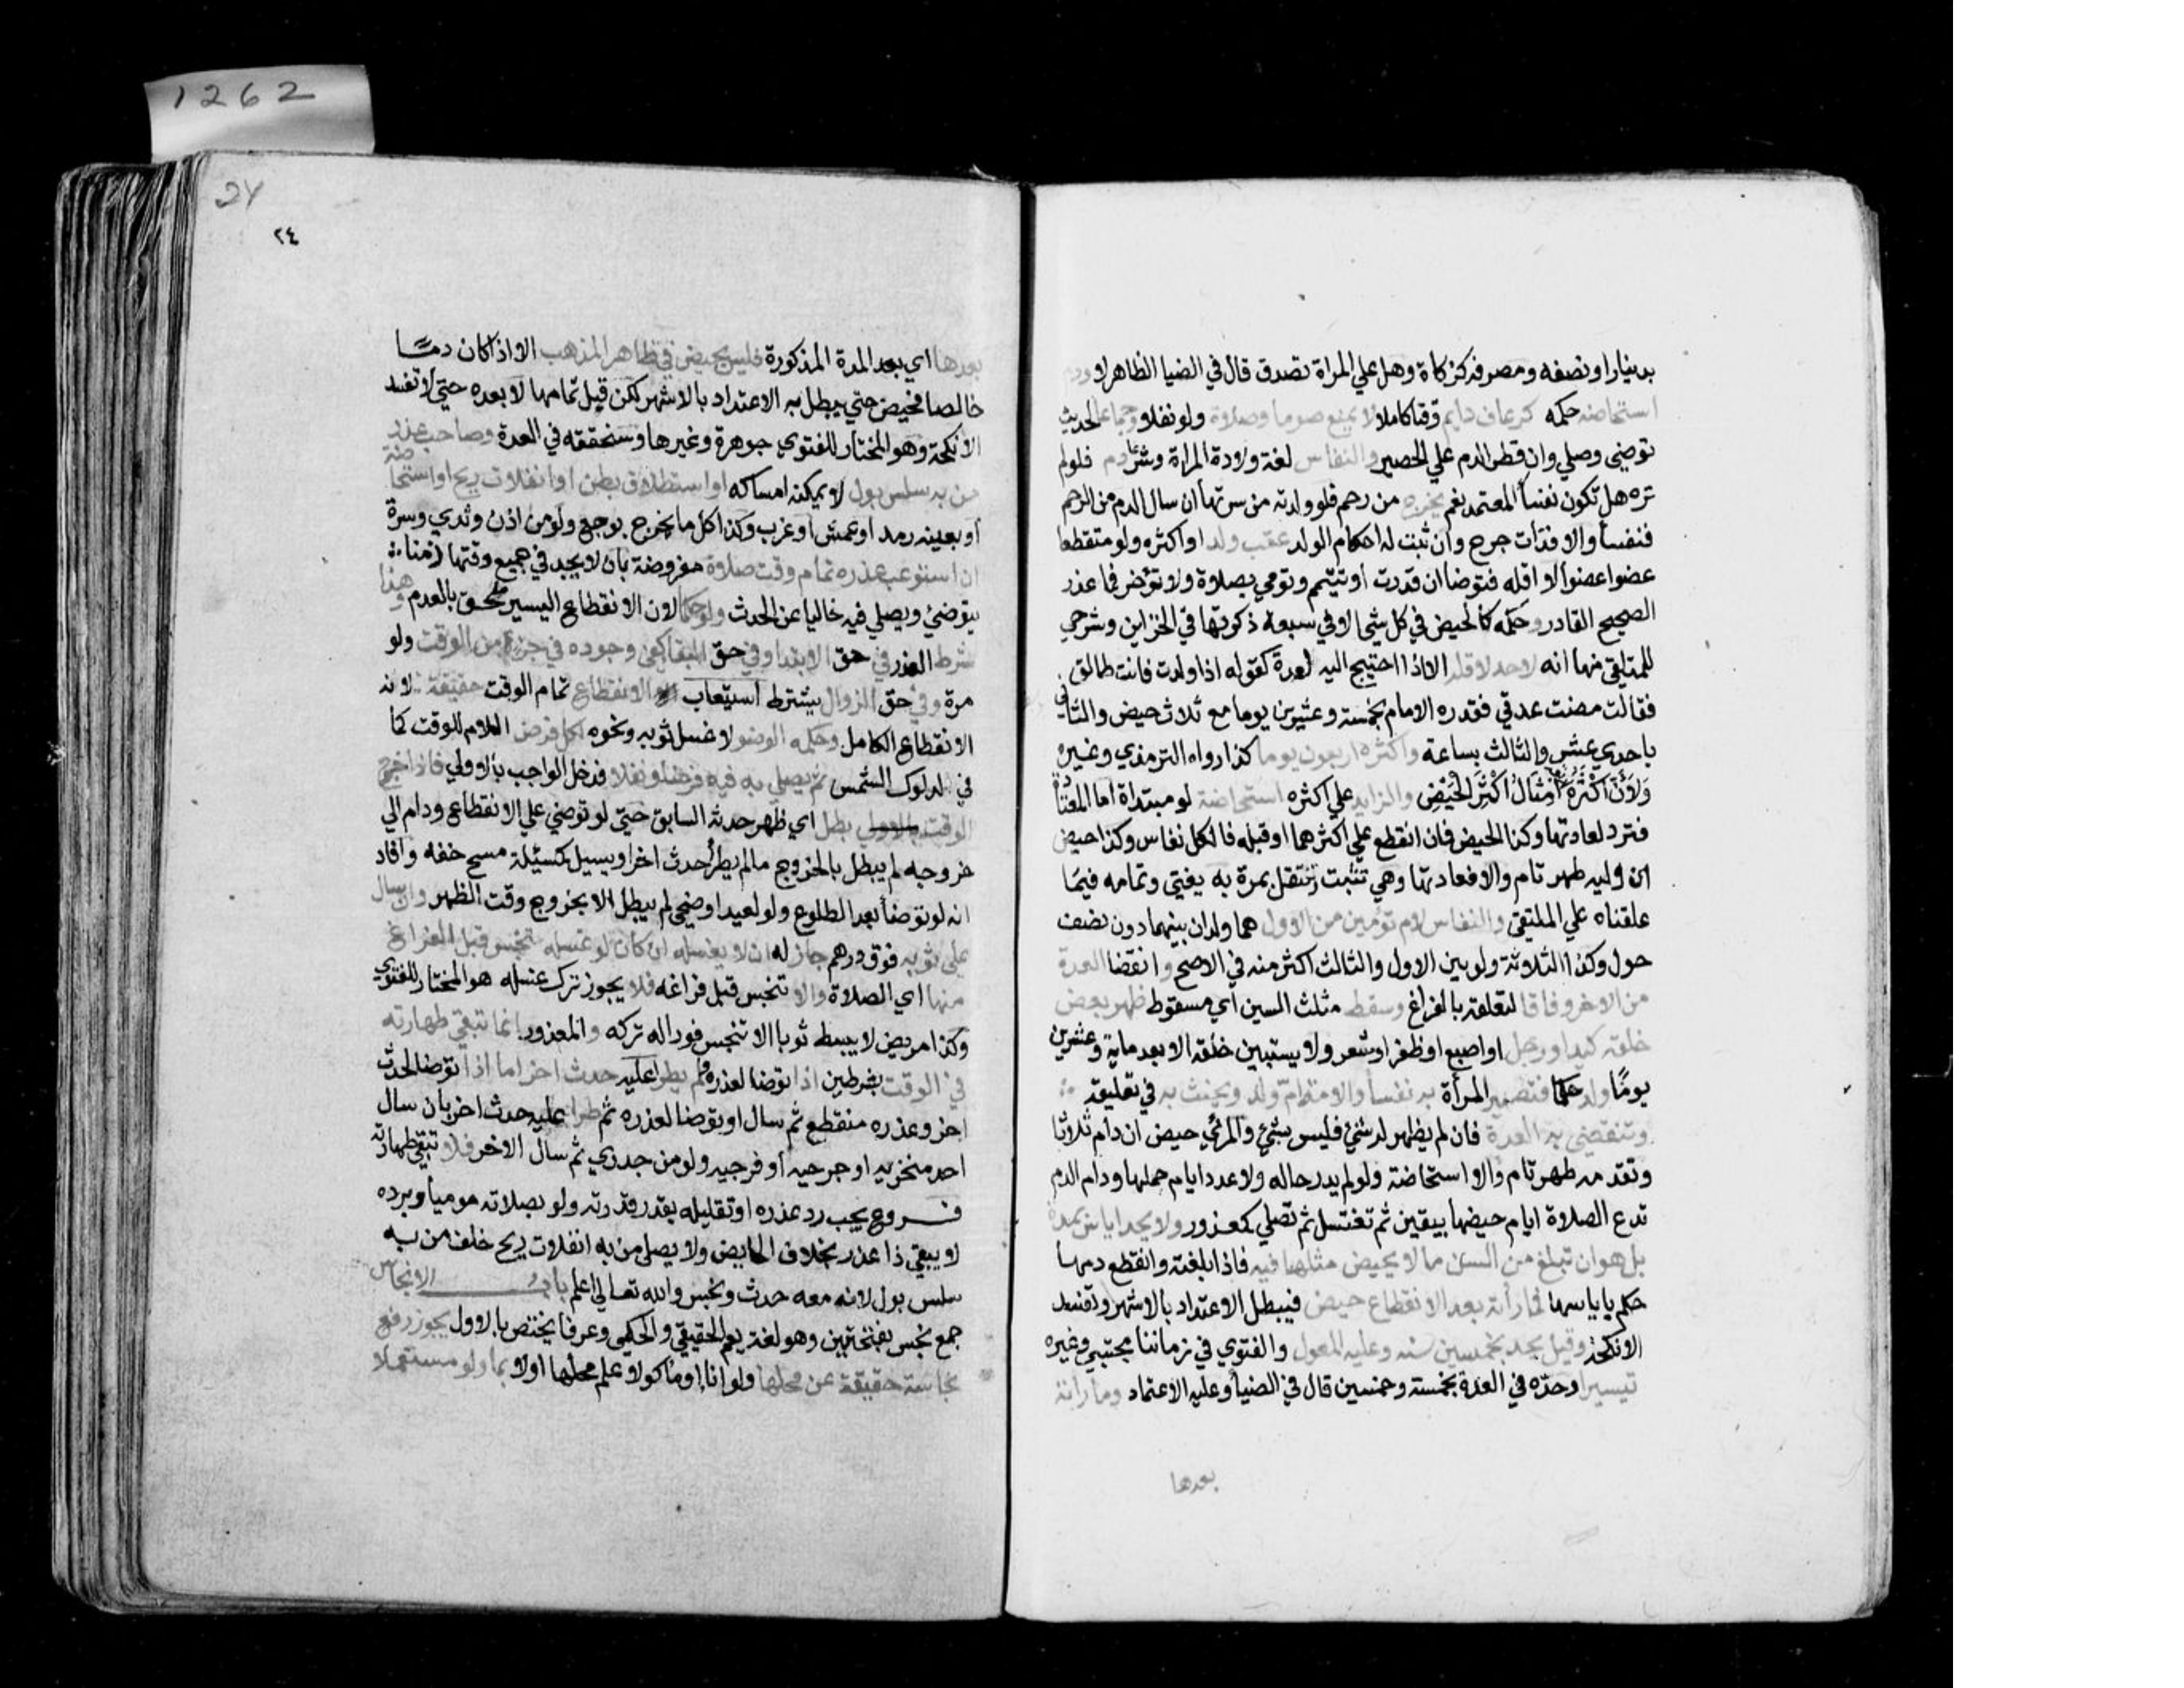 1262
بدينار او نصفه ومصرفه كزكاة وهل علي المراة تصدق قال في الضيا الظاهر لا ودم
استحاضه حكمه كرعاف دايم وقتا كاملا لا يمنع صوما وصلاة ولو نفلا وجماعا لحديث
توضي وصلي وان قطر الدم علي الحصير والنفاس لغة ولادة المراة وشرعا دم فلو لم
تره هل تكون نفسأ المعتمد نعم يخرج من رحم فلو ولدته من سرتها ان سال الدم من الرحم
فنفسأ والا فذات جرح وان ثبت له احكام الولد عقب ولد او اكثره ولو متقطعا
عضوا عضوا لا اقله فتوضا ان قدرت او تتيمم وتومي بصلاة ولا تؤخر فما عذر
الصحيح القادر وحكمه كالحيض في كل شي الا في سبعة ذكرتها في الخزاين وشرحي
للملتقي منها انه لا حد لاقله الا اذا احتيج اليه لعدة كقوله اذا ولدت فانت طالق
فقالت مضت عدتي فقدره الامام بخمسة وعشرين يوما مع ثلاث حيض والثاني
باحدي عشر والثالث بساعة واكثره اربعون يوما كذا رواه الترمذي وغيره
وَلاَنَّ اكْثَرَهُ أربعة أمْثَالُ أكْثَر الحَيْضِ والزايد علي اكثره استحاضة لو مبتداة اما المعتادة
فترد لعادتها وكذا الحيض فان انقطع علي اكثرهما او قبله فالكل نفاس وكذا حيض
ان وليه طهر تام والا فعادتها وهي تثبت وتنتقل بمرة به يفتي وتمامه فيما
علقناه علي الملتقي والنفاس لام تؤمين من الاول هما ولدان بينهما دون نصف
حول وكذا الثلاثة ولو بين الاول والثالث اكثر منه في الاصح وانقضا العدة
من الاخر وفاقا لتعلقه بالفراغ وسقط مثلث السين اي مسقوط ظهر بعض
خلقه كيد او رجل او اصبع او ظفر او شعر ولا يستبين خلقه الا بعد ماية وعشرين
يومًا ولد حكما فتصير المرأة به نفسأ والامة ام ولد ويحنث به في تعليقه
وتنقضي به العدة فان لم يظهر له شئ فليس بشئ والمرئي حيض ان دام ثلاثا
وتقدمه طهر تام والا استحاضة ولو لم يدر حاله ولا عدد ايام حملها ودام الدم
تدع الصلاة ايام حيضها بيقين ثم تغتسل ثم تصلي كمعذور ولا يحد اياس بمدة
بل هو ان تبلغ من السن ما لا يحيض مثلها فيه فاذا بلغته وانقطع دمها
حكم باياسها فما رأته بعد الانقطاع حيض فيبطل الاعتداد بالاشهر وتفسد
الانكحة وقيل يحد بخمسين سنه وعليه المعول والفتوي في زماننا مجتبي وغيره
تيسيرا وحدّه في العدة بخمسة وخمسين قال في الضيأ وعليه الاعتماد وما رأته
بعدها
24
٢٤
بعدها اي بعد المدة المذكورة فليس بحيض في ظاهر المذهب الا اذا كان دمًا
خالصا فحيض حتي يبطل به الاعتداد بالاشهر لكن قبل تمامها لا بعده حتي لا تفسد
الانكحة وهو المختار للفتوي جوهرة وغيرها وسنحققه في العدة وصاحب عذر
من به سلس بول لا يمكنه امساكه او استطلاق بطن او انفلات ريح او استحاضة
او بعينه رمد او عمش او غرب وكذا كل ما يخرج بوجع ولو من اذن وثدي وسرة
ان استوعب عذره تمام وقت صلاة مفروضة بان لا يجد في جميع وقتها زمنا
يتوضئ ويصلي فيه خاليا عن الحدث ولو حكما لان الانقطاع اليسير ملحق بالعدم وهذا
شرط العذر في حق الابتدا وفي حق البقا كفي وجوده في جزء من الوقت ولو
مرة وفي حق الزوال يشترط استيعاب الانقطاع تمام الوقت حقيقة لانه
الانقطاع الكامل وحكمه الوضو لا غسل ثوبه ونحوه لكل فرض اللام للوقت كما
في لدلوك الشمس ثم يصلي به فيه فرضا ونفلا فدخل الواجب بالاولي فاذا خرج
الوقت بالاولي بطل اي ظهر حدثه السابق حتي لو توضي علي الانقطاع ودام الي
خروجه لم يبطل بالخروج مالم يطرأ حدث اخر او يسيل كمسئلة مسح خفه وافاد
انه لو توضأ بعد الطلوع ولو لعيد او ضحي لم يبطل الا بخروج وقت الظهر وان سال
علي ثوبه فوق درهم جاز له ان لا يغسله ان كان لو غسله تنجس قبل الفراغ
منها اي الصلاة والا تتنجس قبل فراغه فلا يجوز ترك غسله هو المختار للفتوي
وكذا مريض لا يبسط ثوبا الا تنجس فورا له تركه والمعذور انما تبقي طهارته
في الوقت بشرطين اذا توضا لعذره ولم يطرا عليه حدث اخر اما اذا توضا لحدث
اخر وعذره منقطع ثم سال او توضا لعذره ثم طرا عليه حدث اخر بان سال
احد منخريه او جرحيه او قرحيه ولو من جدري ثم سال الاخر فلا تبقي طهارته
فــروع يجب رد عذره او تقليله بقدر قدرته ولو بصلاته موميا وبرده
لا يبقي ذا عذر بخلاف الحايض ولا يصلي من به انفلات ريح خلف من به
سلس بول لانه معه حدث ونجس والله تعالي اعلم باب الانجاس
جمع نجس بفتحتين وهو لغة يعم الحقيقي والحكمي وعرفا يختص بالاول يجوز رفع
نجاسة حقيقة عن محلها ولو انا او ماكولا علم محلها اولا بما ولو مستعملا